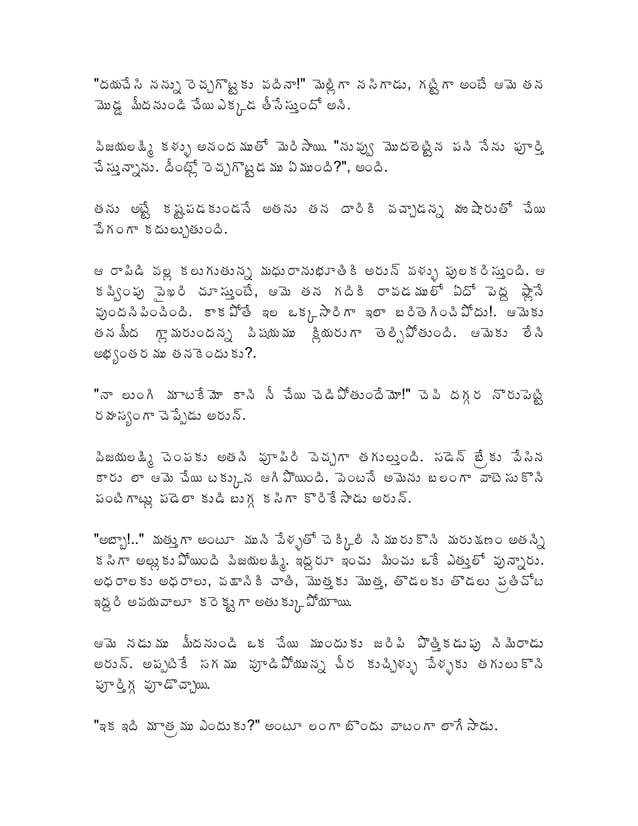 "దయచేసి నన్ను రెచ్చగొట్టకు వదినా!" మెల్లిగా నసిగాడు, గట్టిగా అంటే ఆమె తన
మొడ్డ మీదనుండి చేయి ఎక్కడ తీసేస్తుందో అని.
విజయలక్ష్మి కళ్ళు అనందముతో మెరిసాయి. "నువ్వు మొదలెట్టిన పని నేను పూర్తి
చేస్తున్నాను. దీంట్లో రెచ్చగొట్టడము ఏముంది?", అంది.
తను అట్టే కష్టపడకుండనే అతను తన దారికి వచ్చాడన్న హుషారుతో చేయి
వేగంగా కదుల్చుతుంది.
ఆ రాపిడి వల్ల కలుగుతున్న మధురానుభూతికి అరున్ వళ్ళు పులకరిస్తుంది. ఆ
కవ్వింపు వైఖరి చూస్తుంటే, ఆమె తన గదికి రావడములో ఏదో పెద్ద ప్లానే
వుందనిపించింది. కాకపోతే ఇల ఒక్కసారిగా ఇలా బరితెగించివోదు!. ఆమెకు
తనమీద గ్లామరుందన్న విషయము క్లియరుగా తెల్సిపోతుంది. ఆమెకు లేని
అభ్యంతరము తనకెందుకు?.
"నా లుంగి మాటకేమో కాని నీ చేయి చెడిపోతుందేమో!" చెవి దగ్గర నొరుపెట్టి
రహస్యంగా చెప్పేడు అరున్.
విజయలక్ష్మి చెంపకు అతని వూపిరి వెచ్చగా తగుల్తుంది. సడెన్ బ్రేకు వేసిన
కారు లా ఆమె చేయి టక్కున ఆగిపొయింది. వెంటనే అమెను బలంగా వాటెసుకొని
పంటిగాట్లు పడెలా కుడి బుగ్గ కసిగా కొరికేసాడు అరున్.
"అబ్బా!.." మత్తుగా అంటూ ముని వేళ్ళతో చెక్కిలి నిమురుకొని మరుక్షణం అతన్ని
కసిగా అల్లుకుపోయింది విజయలక్ష్మి. ఇద్దరూ ఇంచు మించు ఒకే ఎత్తులో వున్నారు.
అధరాలకు అధరాలు, వక్షానికి చాతి, మొత్తకు మొత్త, తొడలకు తొడలు ప్రతిచోట
ఇద్దరి అవయవాలూ కరెక్టుగా అతుక్కుపోయాయి.
ఆమె నడుము మీదనుండి ఒక చేయి ముందుకు జరిపి పొత్తికడుపు నిమిరాడు
అరున్. అప్పటికే సగము వూడిపోయున్న చీర కుచ్చిళ్ళు వేళ్ళకు తగులుకొని
పూర్తిగ్గ వూడొచ్చాయి.
"ఇక ఇది మాత్రము ఎందుకు?" అంటూ లంగా బొందు వాటంగా లాగేసాడు.